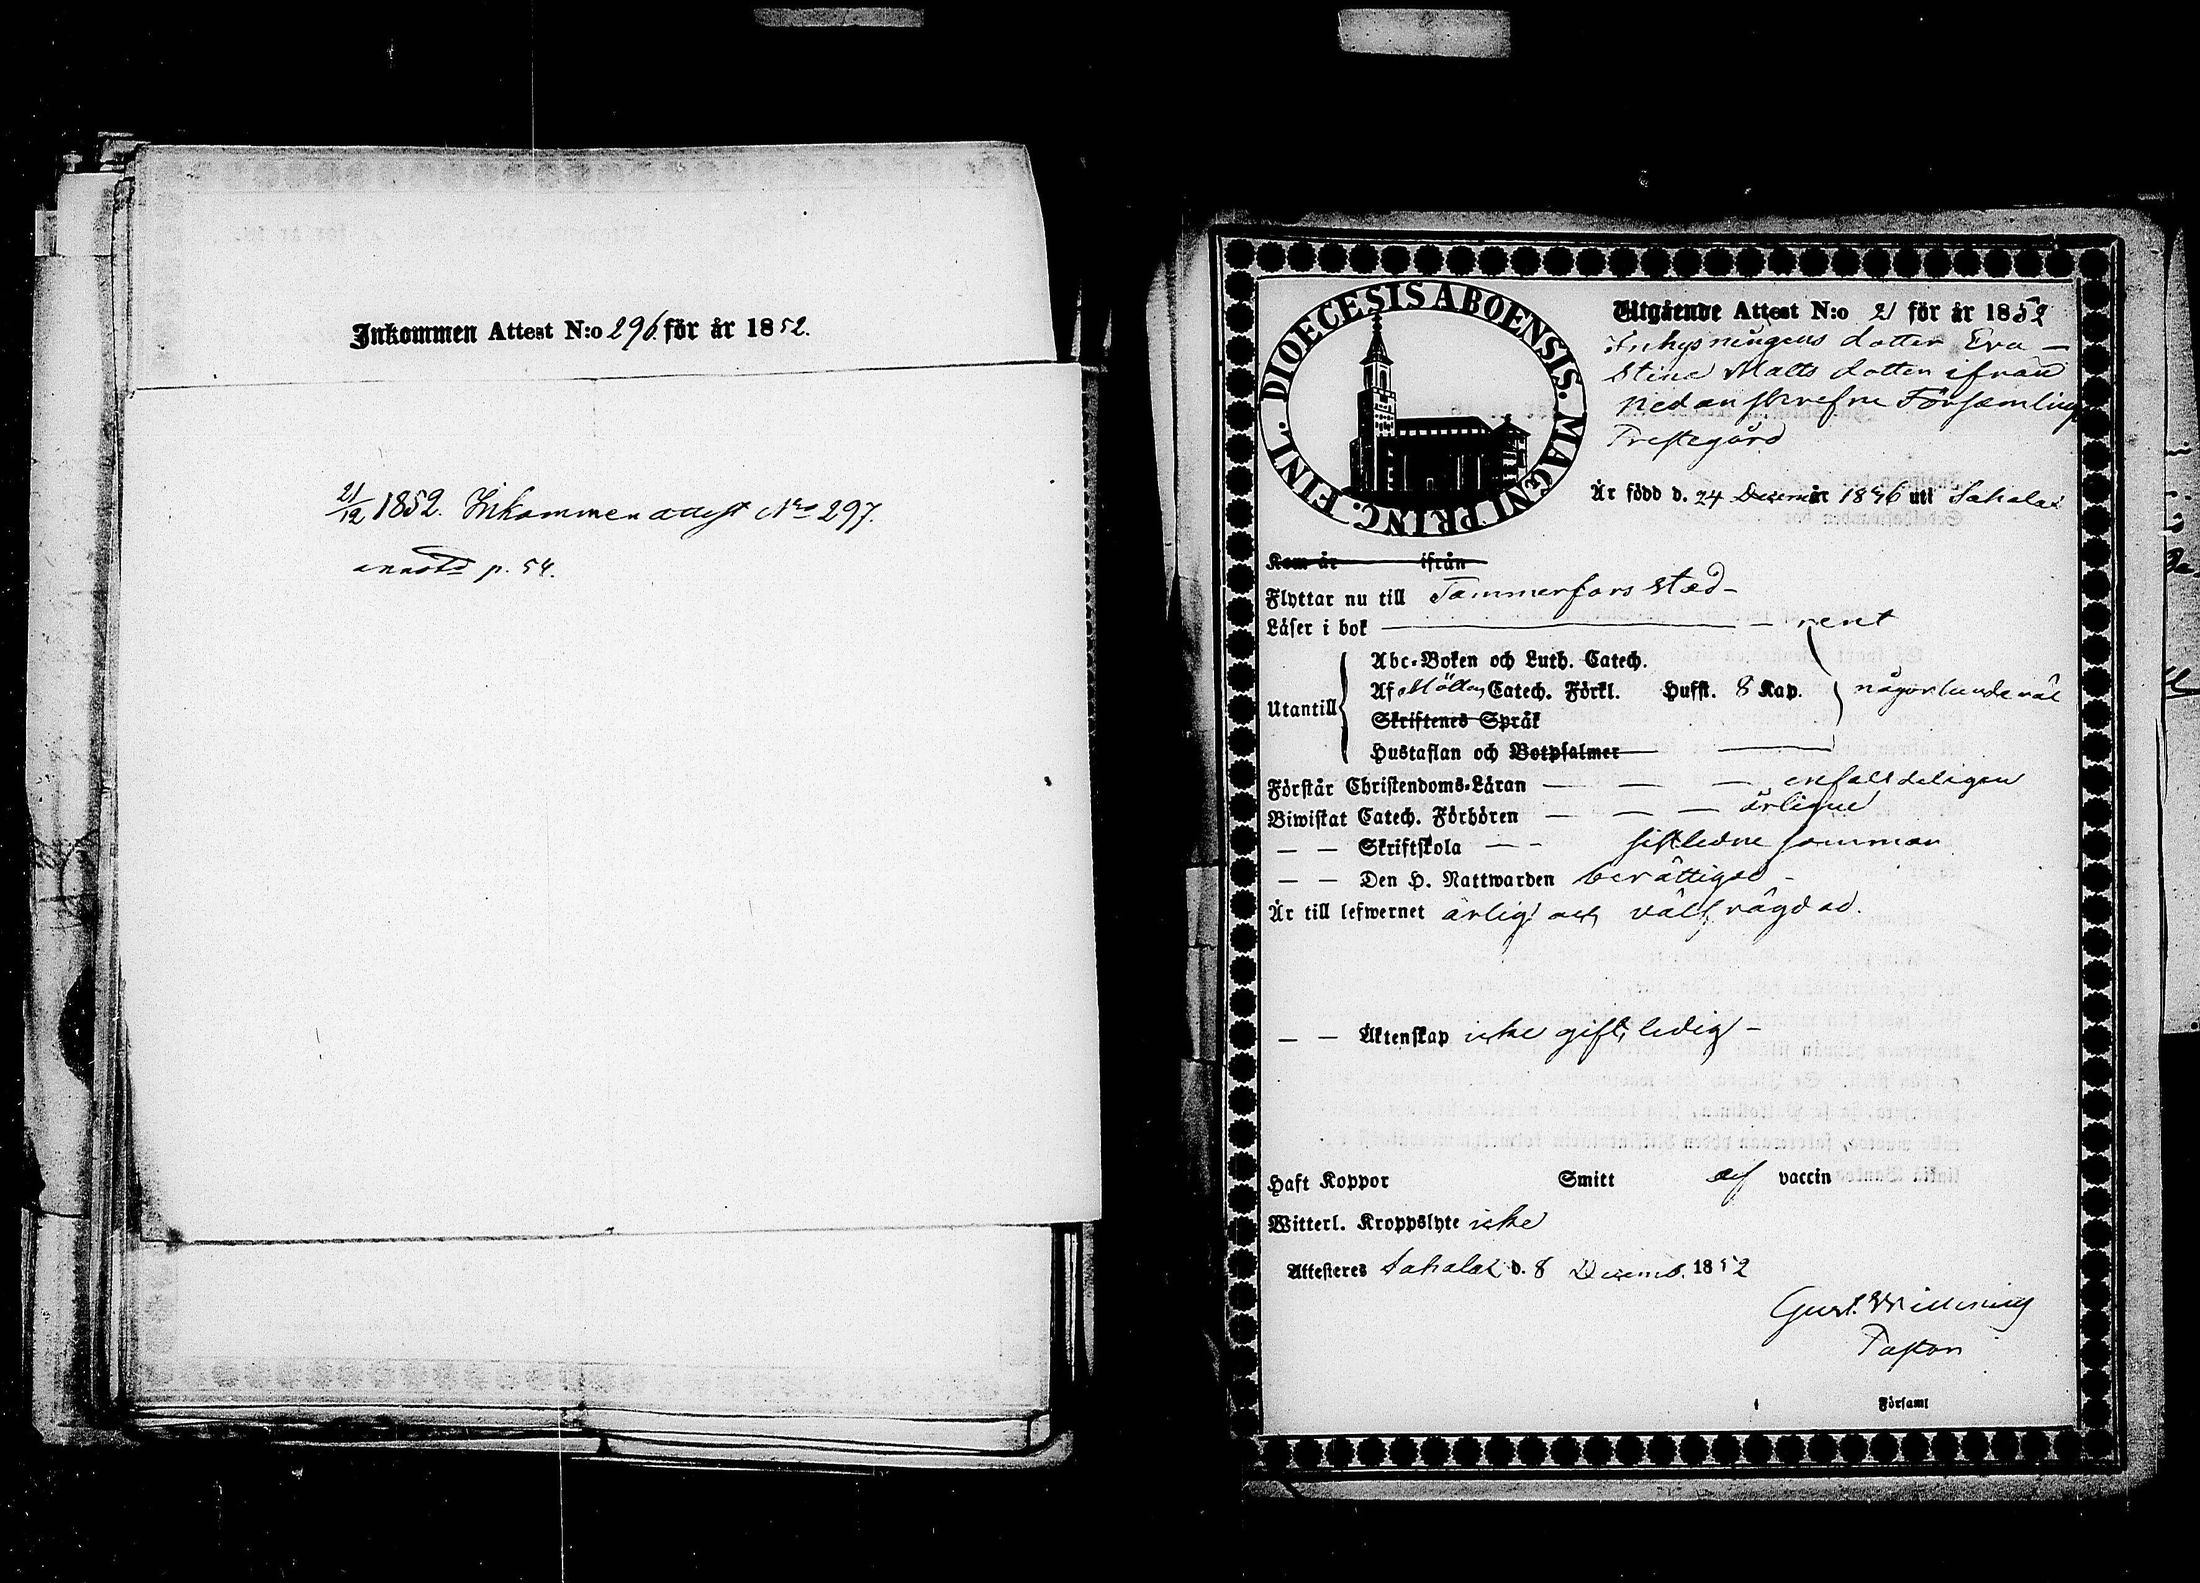 Inkommen Attest N:o 296. för år 1852.
21/12 1852. Inkommen attest Nro 297.
annotd p. 54.
DIOECESIS ABOENSIS. MAGNI PRINC. FINL.
Utgående Attest N:o 21 för år 1852
Inhysningens dotter Eva
Stina Matts dotter ifrån
Nedanskrefne Församlings
Prestegård
Är född d. 24 Decemb år 1836 uti Sahalax
Kom år ifrån
Flyttar nu till Tammerfors stad
Läser i bok rent
Utantill
Abc-Boken och Luth. Catech.
Af Möllers Catech. Förkl. Hufst. 8 Kap. någorlunda väl
Skriftenes Språk
Hustaflan och Botpsalmer
Förstår Christendoms-Läran enfaldeligen
Biwistat Catech. Förhören årligen
— — Skriftskola sistledne sommar
— — Den H. Nattwarden berättigad
Är till lefwernet ärlig och välfrägdad.
— — Äktenskap icke gift, ledig
Haft Koppor Smitt af vaccin
Witterl. Kroppslyte icke
Attesteras Sahalax d. 8 Decemb. 1852
Gust.
Pastor
Församl